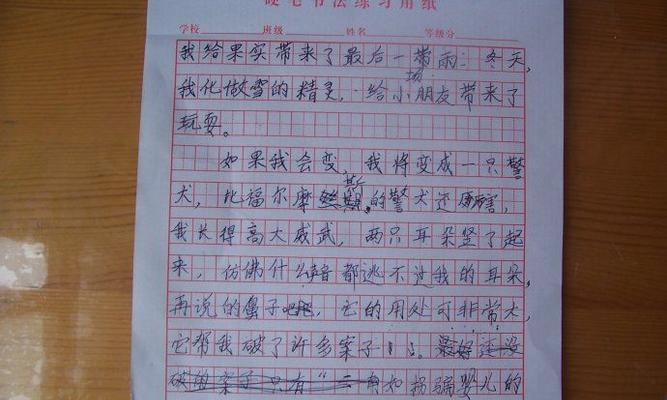 硬笔书法练习用纸
学校 班级 姓名 等级分
我给果实带来了最后一带雨；冬天，
场
我化做雪的精灵，给小朋友带来了
玩耍。
如果我会变，我将变成一只警
斯
犬，比福尔摩的警犬还厉害，
我长得高大威武，两只耳朵竖了起
来，仿佛什么声音都逃不过我的耳朵，
再说的鼻子吧，它的用处可非常大，
它帮我破了许多案子！！。最好还没
破的案子只有“二有如拐骗婴儿的